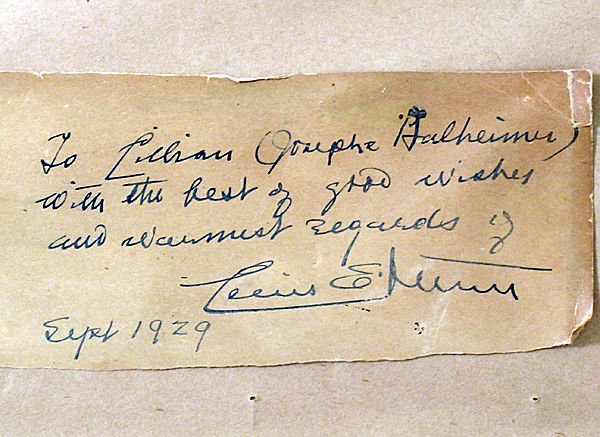 To Lillian (Josephe Halheimer)
with the best of good wishes
and warmest regards of
Louis E.
Sept 1929